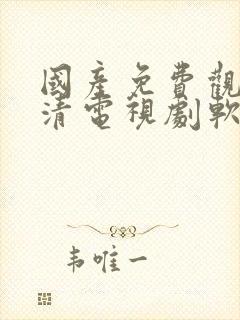 國產免費觀
清電視劇軟
韦唯一